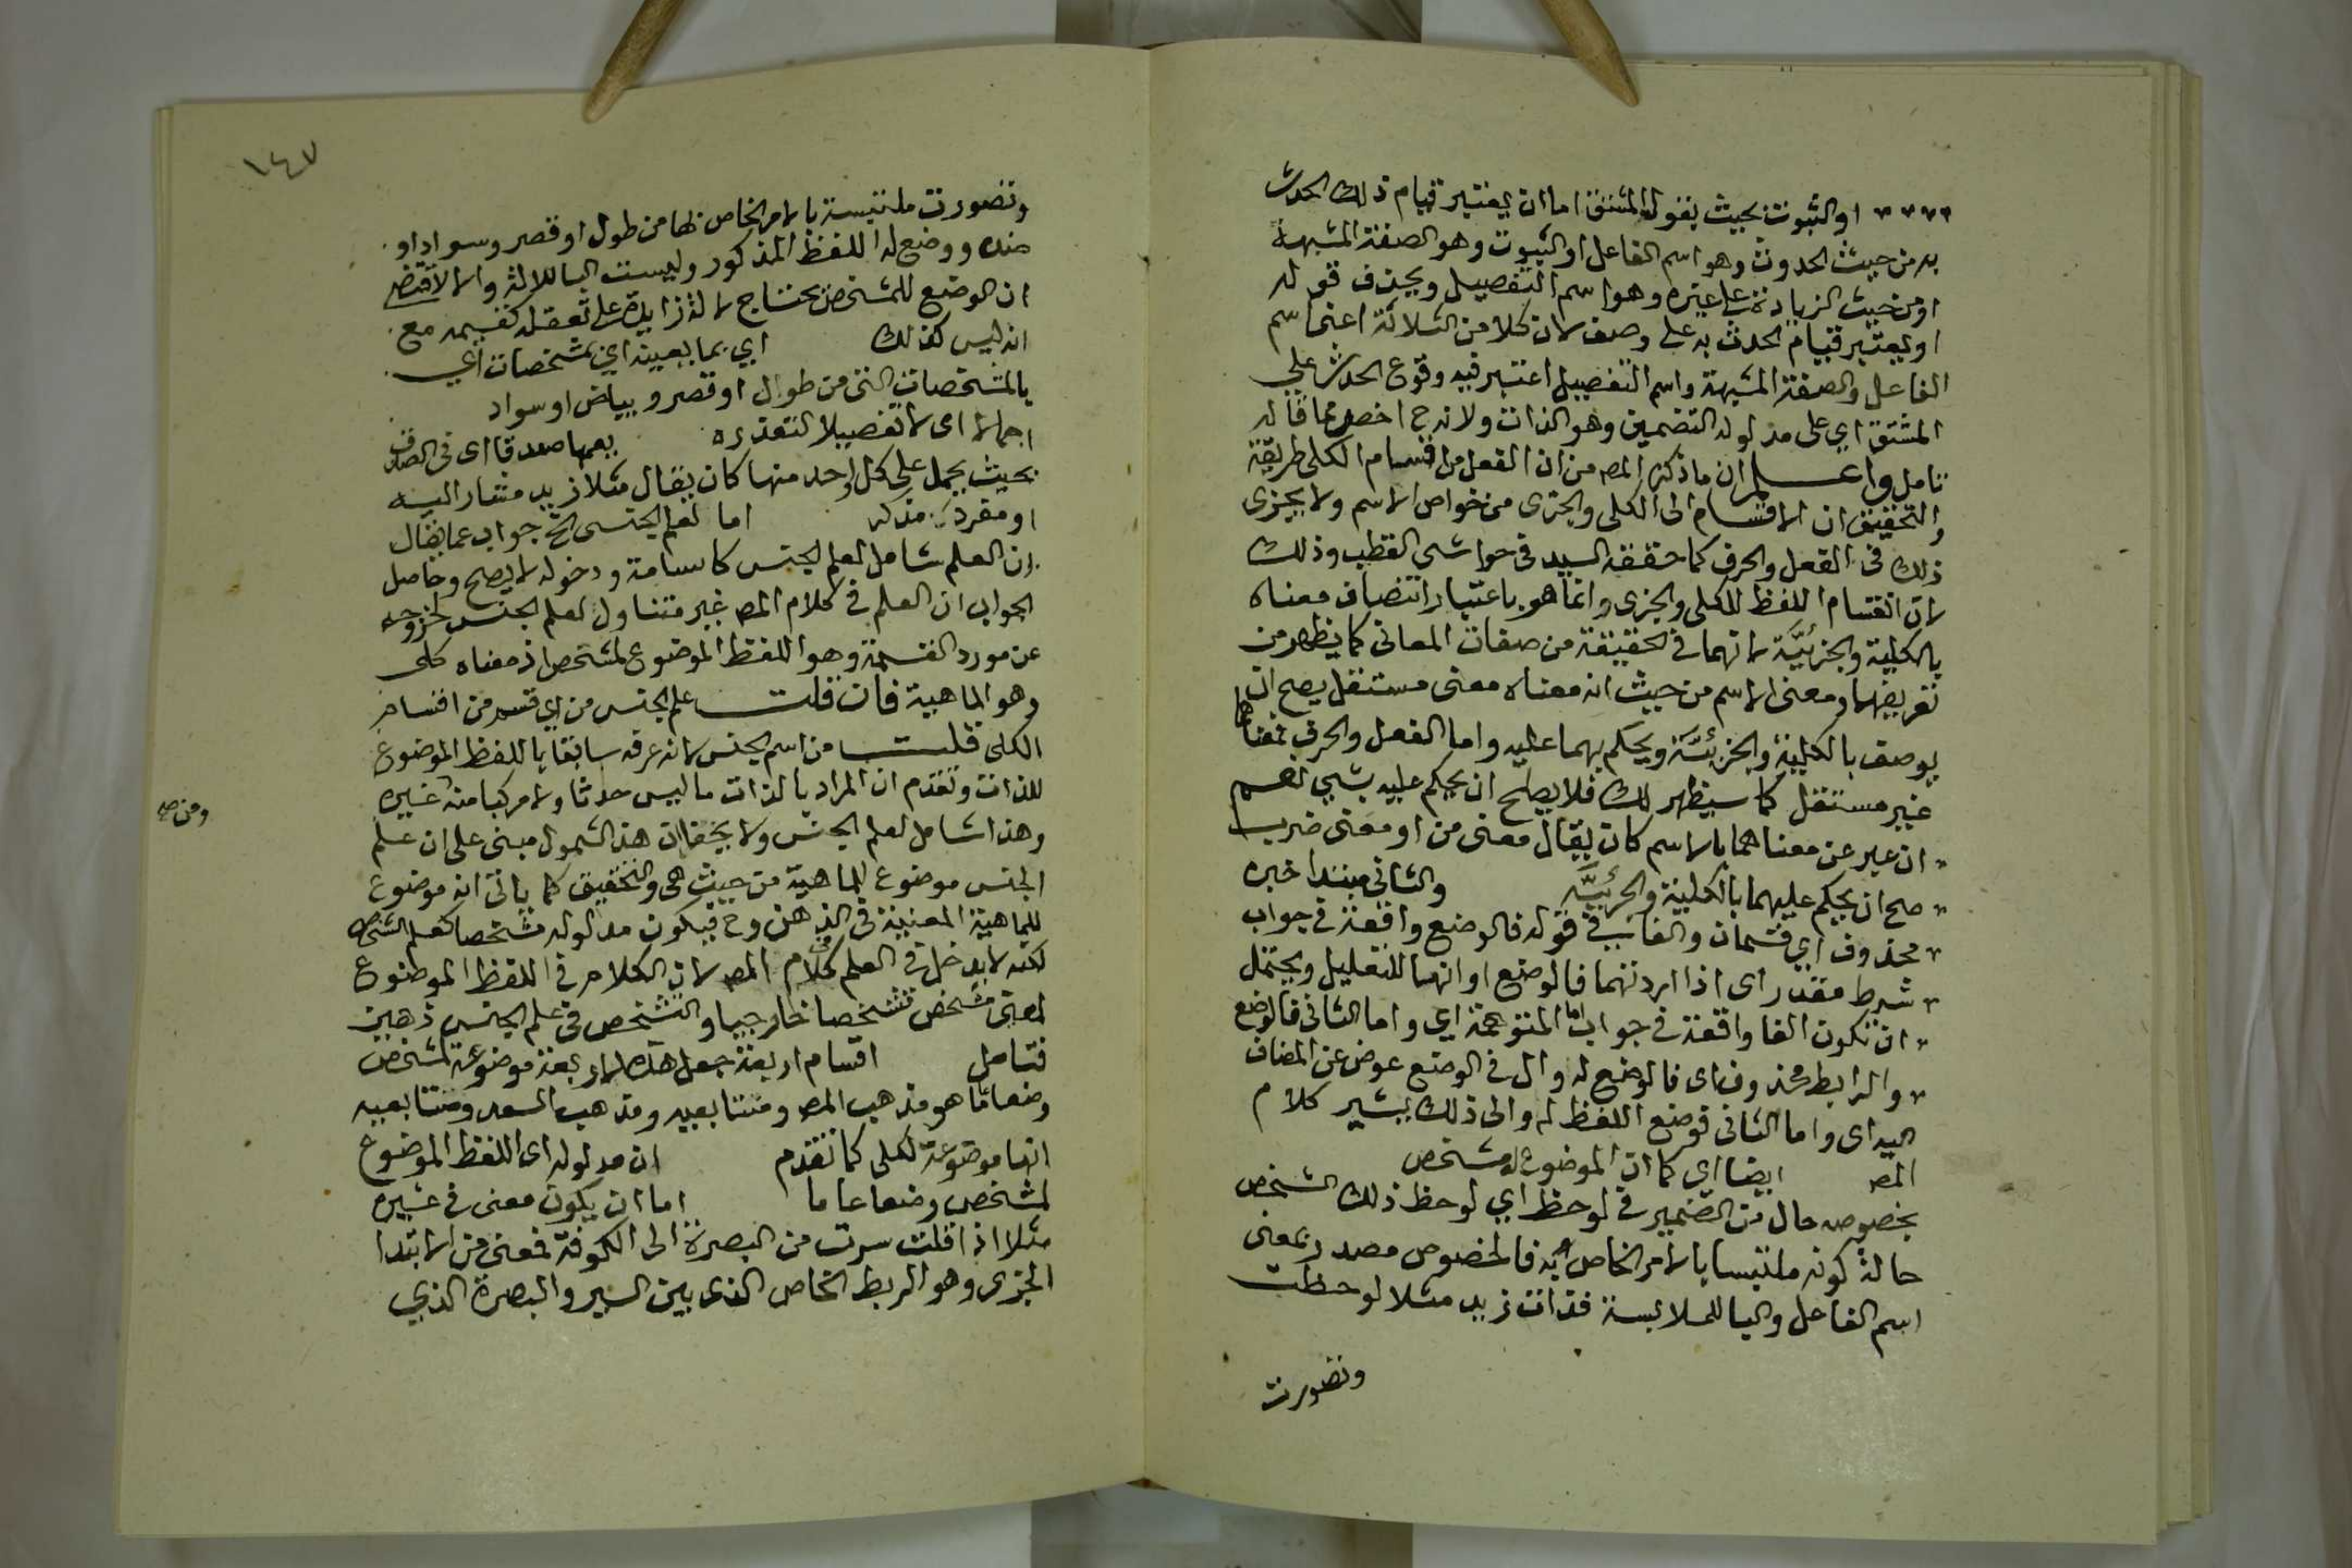 او الثبوت بحيث يقوله المشتق اما ان يعتبر قيام ذلك الحدث
به من حيث الحدوث وهو اسم الفاعل او الثبوت وهو الصفة المشبهة
او من حيث الزيادة على غيره وهو اسم التفصيل ويحذف قوله
او يعتبر قيام الحدث به على وصف لان كلا من الثلاثة اعني اسم
الفاعل والصفة المشبهة واسم التفصيل اعتبر فيه وقوع الحدث علي
المشتق اي على مدلوله التضمين وهو الذات ولا ندرج اخصر مما قاله
تامل واعلم ان ما ذكره المص من ان الفعل من اقسام الكلى طريقة
والتحقيق ان الاقسام الى الكلى والجزى من خواص الاسم ولا يجزى
ذلك فى الفعل والحرف كما حققه السيد في حواشى القطب وذلك
لان انقسام اللفظ للكلى والجزى وانما هو باعتبار اتصاف معناه
بالكلية والجزئيّة لانهما في الحقيقة من صفات المعانى كما يظهر من
تعريفهما ومعنى الاسم من حيث انه معناه معنى مستقل يصح ان
يوصف بالكلية والجزئيّة ويحكم بهما عليه واما الفعل والحرف فمعناهما
غير مستقل كما سيظهر لك فلا يصلح ان يحكم عليه بشي نعم
ان عبر عن معناهما بالاسم كان يقال معنى من او معنى ضرب
صح ان يحكم عليهما بالكلية والجزئيّة والثاني مبتدا خبره
محذوف اي قسمان والفا في قوله فالوضع واقعة في جواب
شرط مقدر اى اذا اردتهما فالوضع او انها للتعليل ويحتمل
ان تكون الفا واقعة في جواب اما المتوهمة اي واما الثانى فالوضع
والرابط محذوف اى فالوضع له وال فى الوضع عوض عن المضاف
اليه اى واما الثانى فوضع اللفظ له والى ذلك يشير كلام
المص ايضا اي كما ان الموضوع له مشخص
بخصوصه حال من الضمير في لوحظ اي لوحظ ذلك الشخص
حالة كونه ملتبسا بالامر الخاص به فالخصوص مصدر بمعنى
اسم الفاعل والبا للملابسة فذات زيد مثلا لوحظت
وتصورت
١٤٧
وتصورت ملتبسة بالامر الخاص بها من طول او قصر وسواد او
ضده ووضع له اللفظ المذكور وليست البا للالة والا لاقتضى
ان الوضع للمشخص يحتاج لالة زايدة على تعقله كقسيمه مع
انه ليس كذلك اي بما بعينه اي بمشخصات اي
بالمشخصات التى من طول او قصر وبياض او سواد
اجمالا اى لا تفصيلا لتعذره بعمها صدقا اى فى الصدق
بحيث يحمل على كل واحد منها كان يقال مثلا زيد مشار اليه
او مفرد مذكر اما لعلم الجنسى الخ جواب عما يقال
ان العلم شامل لعلم الجنس كاسامة ودخوله لا يصح وحاصل
الجواب ان العلم في كلام المص غير متناول لعلم الجنس لخروجه
عن مورد القسمة وهو اللفظ الموضوع لمشخص اذ معناه كلى
وهو الماهية فان قلت علم الجنس من اي قسم من اقسام
الكلى قلت من اسم الجنس لانه عرفه سابقا باللفظ الموضوع
للذات وتقدم ان المراد بالذات ما ليس حدثا ولا مركبا منه غيره
ومن ص
وهذا شامل لعلم الجنس ولا يخفا ان هذا الشمول مبنى على ان علم
الجنس موضوع للماهية من حيث هى والتحقيق كما ياتى انه موضوع
للماهية المعنية في الذهن وح فيكون مدلوله مشخصا كعلم الشخص
لكنه لا يدخل في العلم في كلام المص لان الكلام في اللفظ الموضوع
لمعنى مشخص تشخصا خارجيا والتشخص في علم الجنس ذهنى
فتامل اقسام اربعة جعل هذه الاربعة موضوعة لمشخص
وضعا عاما هو مذهب المص ومتتابعيه ومذهب السعد ومتتابعيه
انها موضوعة لكلى كما تقدم ان مدلوله اى اللفظ الموضوع
لمشخص وضعا عاما اما ان يكون معنى في غيره
مثلا اذا قلت سرت من البصرة الى الكوفة فمعنى من الابتدا
الجزى وهو الربط الخاص الذى بين السير والبصرة الذي